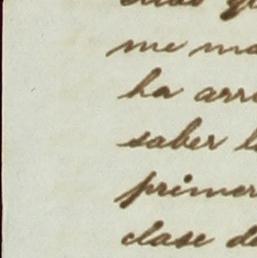 me ma
ha arr
saber l
primer
clase de